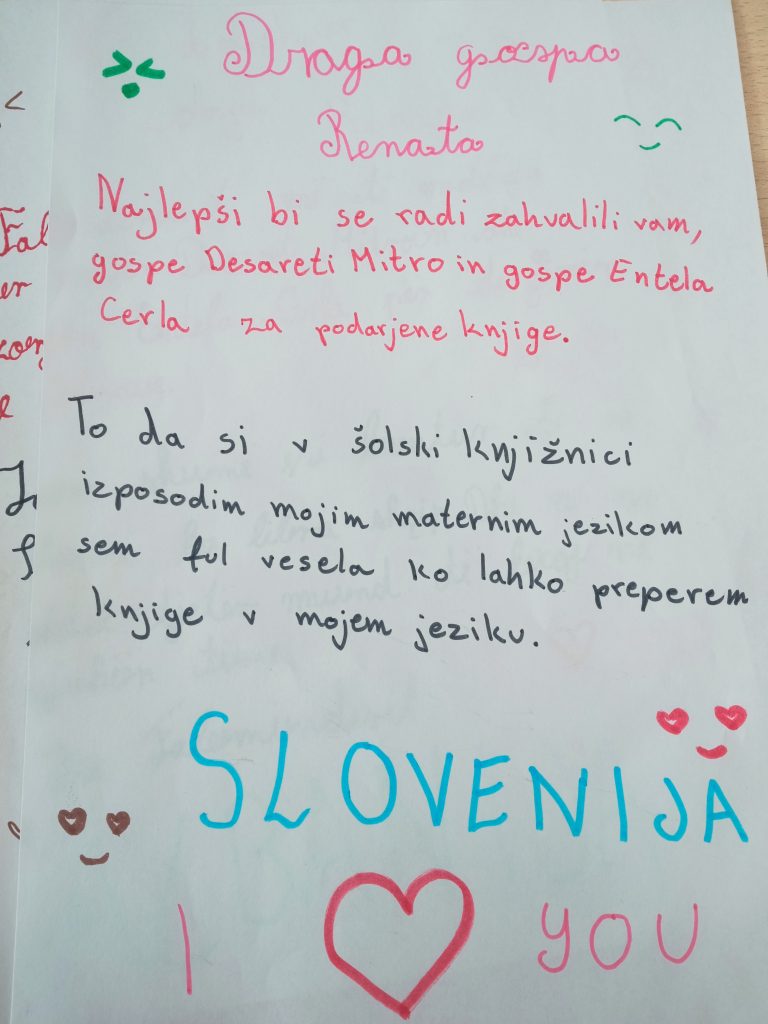 Draga gospa
Renata
Najlepši bi se radi zahvalili vam,
gospe Desareti Mitro in gospe Entela
Cerla za podarjene knjige.
To da si v šolski knjižnici
izposodim mojim maternim jezikom
sem ful vesela ko lahko preperem
knjige v mojem jeziku.
SLOVENIJA
I YOU